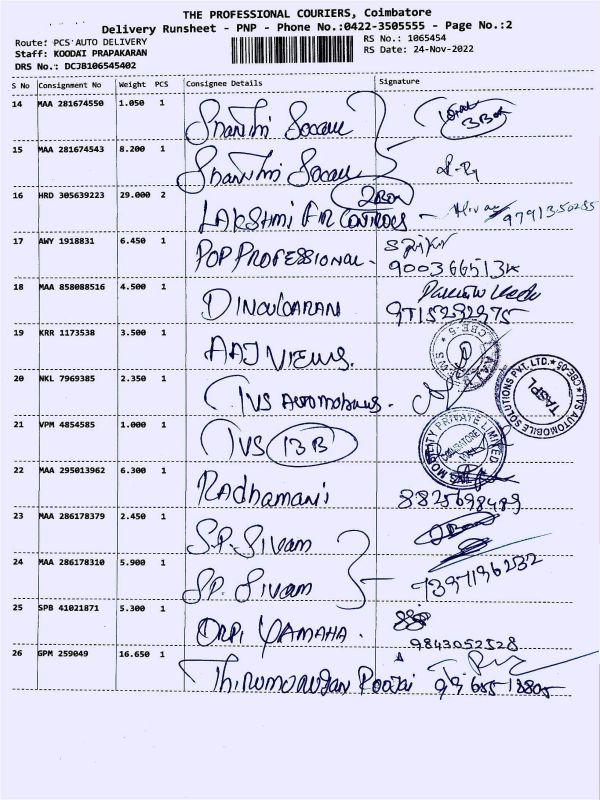 THE PROFESSIONAL COURIERS, Coimbatore
Delivery Runsheet - PNP - Phone No.:0422-3505555 - Page No.:2
Route: PCS AUTO DELIVERY
Staff: KOODAI PRAPAKARAN
DRS No.: DCJB106545402
RS No.: 1065454
RS Date: 24-Nov-2022
S No Consignment No Weight PCS Consignee Details Signature
14 MAA 281674550 1.050 1
15 MAA 281674543 8.200 1
16 HRD 305639223 29.000 2 LAKSHMI AIR CONTROLS - 2 Box
17 AWY 1918831 6.450 1 POP PROFESSIONAL -
18 MAA 858088516 4.500 1 DINOUGARAN 9715292975
19 KRR 1173538 3.500 1 AAJ VIEWS.
20 NKL 7969385 2.350 1 TVS AUTOMOBILES - TVS AUTOMOBILE SOLUTIONS PVT. LTD. CBE-05 TASPL
21 VPM 4854585 1.000 1 TVS 13B TVS MOBILITY PRIVATE LIMITED COIMBATORE
22 MAA 295013962 6.300 1 Radhamani 8825698489
23 MAA 286178379 2.450 1 S.P. Sivam
24 MAA 286178310 5.900 1 S.P. Sivam 7397196232
25 SPB 41021871 5.300 1 ORPI YAMAHA. 9843052528
26 GPM 259049 16.650 1 Thirumurugan Poojai